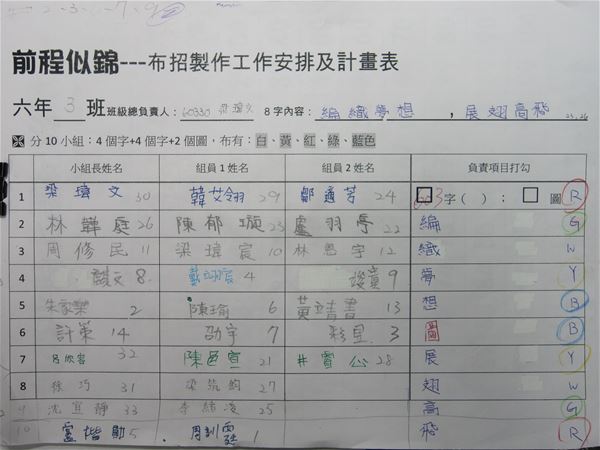 前程似錦---布招製作工作安排及計畫表
六年 3 班班級總負責人：60330 梁瑋文 8字內容：編織夢想，展翅高飛 25,26
分10小組：4個字+4個字+2個圖，布有：白、黃、紅、綠、藍色
小組長姓名 組員1姓名 組員2姓名 負責項目打勾
1 梁瑋文 30 韓艾翎 29 鄒適芳 24 字（ ）； 圖 R
2 林韡庭 26 陳郁璇 23 盧羽亭 22 編 G
3 周修民 11 梁瑋宸 10 林恩宇 12 織 W
4 8 4 9 夢 Y
5 朱家樂 2 陳瑜 6 黃靖書 13 想 B
6 許榮 14 劭宇 7 3 圖 B
7 呂欣容 32 陳邑宣 21 28 展 Y
8 徐巧 31 梁筑鈞 27 翅 W
9 沈宜靜 33 李綺凌 25 高 G
10 盧楷勛 5 周訓 1 飛 R